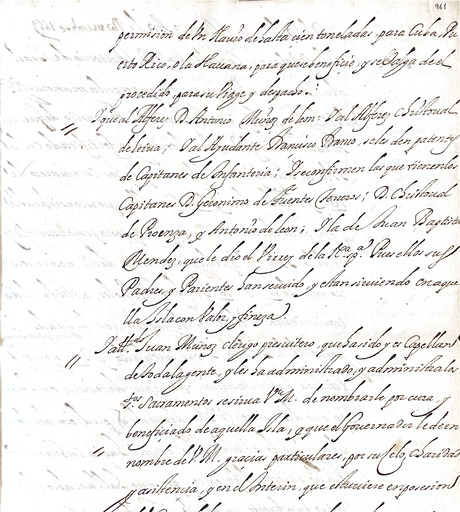 961
permision de Un Nauio de hasta cien toneladas, para Cuba, Pu
erto Rico, o la Hauana, para que se beneficie, y se Valga de el
procedido, para su Viaje y despacho.
Y que al Alferez D. Antonio Muñoz de leon. Y al Alferez Christoual
de leiua; Y al Ayudante Francisco Franco, se les den patentes
de Capitanes de Infanteria; Y se confirmen las que tienen los
Capitanes D. Geronimo de Fuentes Cisneros; D. Christoual
de Proenza, y Antonio de leon; Y la de Juan Baptista
Mendez, que le dio el Virrey de la Nª. spª. Pues ellos sus
Padres, y Parientes han seruido, y estan siruiendo en aque
lla Isla con Valor, y fineza.
Juan Muñoz clerigo presuitero, que ha sido y es Capellan
de toda la gente, y les ha administrado, y administra los
Stos. Sacramentos se sirua V. M. de nombrarle por cura, y
beneficiado de aquella Isla, y que el Gouernador le de en
nombre de V. M. gracias particulares, por su Selo, Charidad
y asistencia, y en el Interin, que estuuiere en posesion